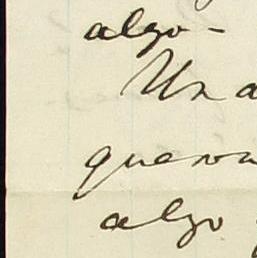 algo-
Un a
que no
algo